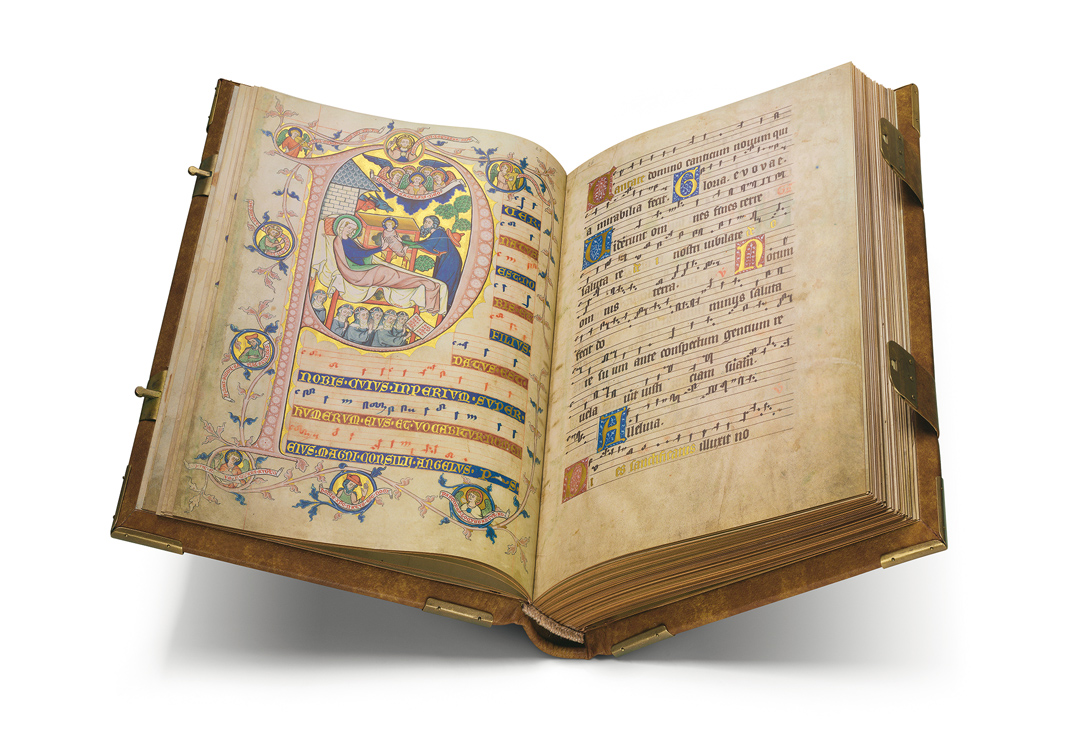 P
FILIVS
DATVS
NOBIS·CVIVS·IMPERIVM·SVPER·
HVMERVM·EIVS·ET·VOCABITVR·
EIVS·MAGNI·CONSILII·ANGELVS· P S
Cantate domino canticum nouum qui
a mirabilia fecit. Gloria. e v o v a e.
Viderunt om nes fines terre
saluta re nostri iubilate
om nis terra. Notum
fecit do minus saluta
re su um ante conspectum gentium re
uela uit iusti ciam suam
Alleluia.
illuxit no